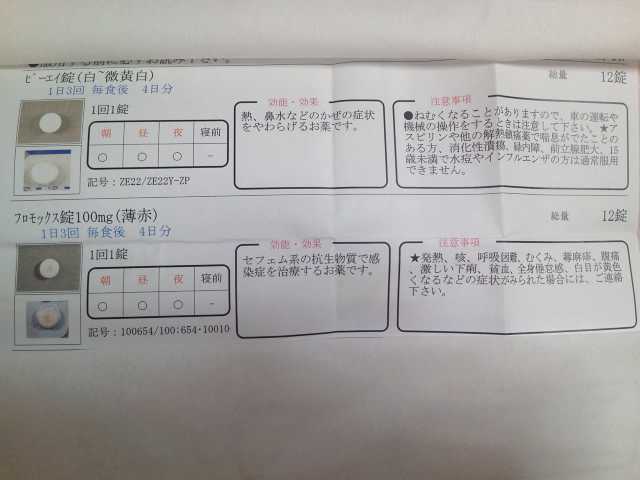 ●服用する前に必ずお読み下さい。
ピーエイ錠(白~微黄白)
総量 12錠
1日3回 毎食後 4日分
1回1錠
朝 昼 夜 寝前
○ ○ ○ -
記号:ZE22/ZE22Y-ZP
効能・効果
熱、鼻水などのかぜの症状
をやわらげるお薬です。
注意事項
●ねむくなることがありますので、車の運転や
機械の操作をするときは注意して下さい。★ア
スピリンや他の解熱鎮痛薬で喘息がでたことの
ある方、消化性潰瘍、緑内障、前立腺肥大、15
歳未満で水痘やインフルエンザの方は通常服用
できません。
フロモックス錠100mg(薄赤)
総量 12錠
1日3回 毎食後 4日分
1回1錠
朝 昼 夜 寝前
○ ○ ○ -
記号:100654/100:654・10010
効能・効果
セフェム系の抗生物質で感
染症を治療するお薬です。
注意事項
★発熱、咳、呼吸困難、むくみ、蕁麻疹、腹痛
、激しい下痢、貧血、全身倦怠感、白目が黄色
くなるなどの症状がみられた場合には、ご連絡
下さい。